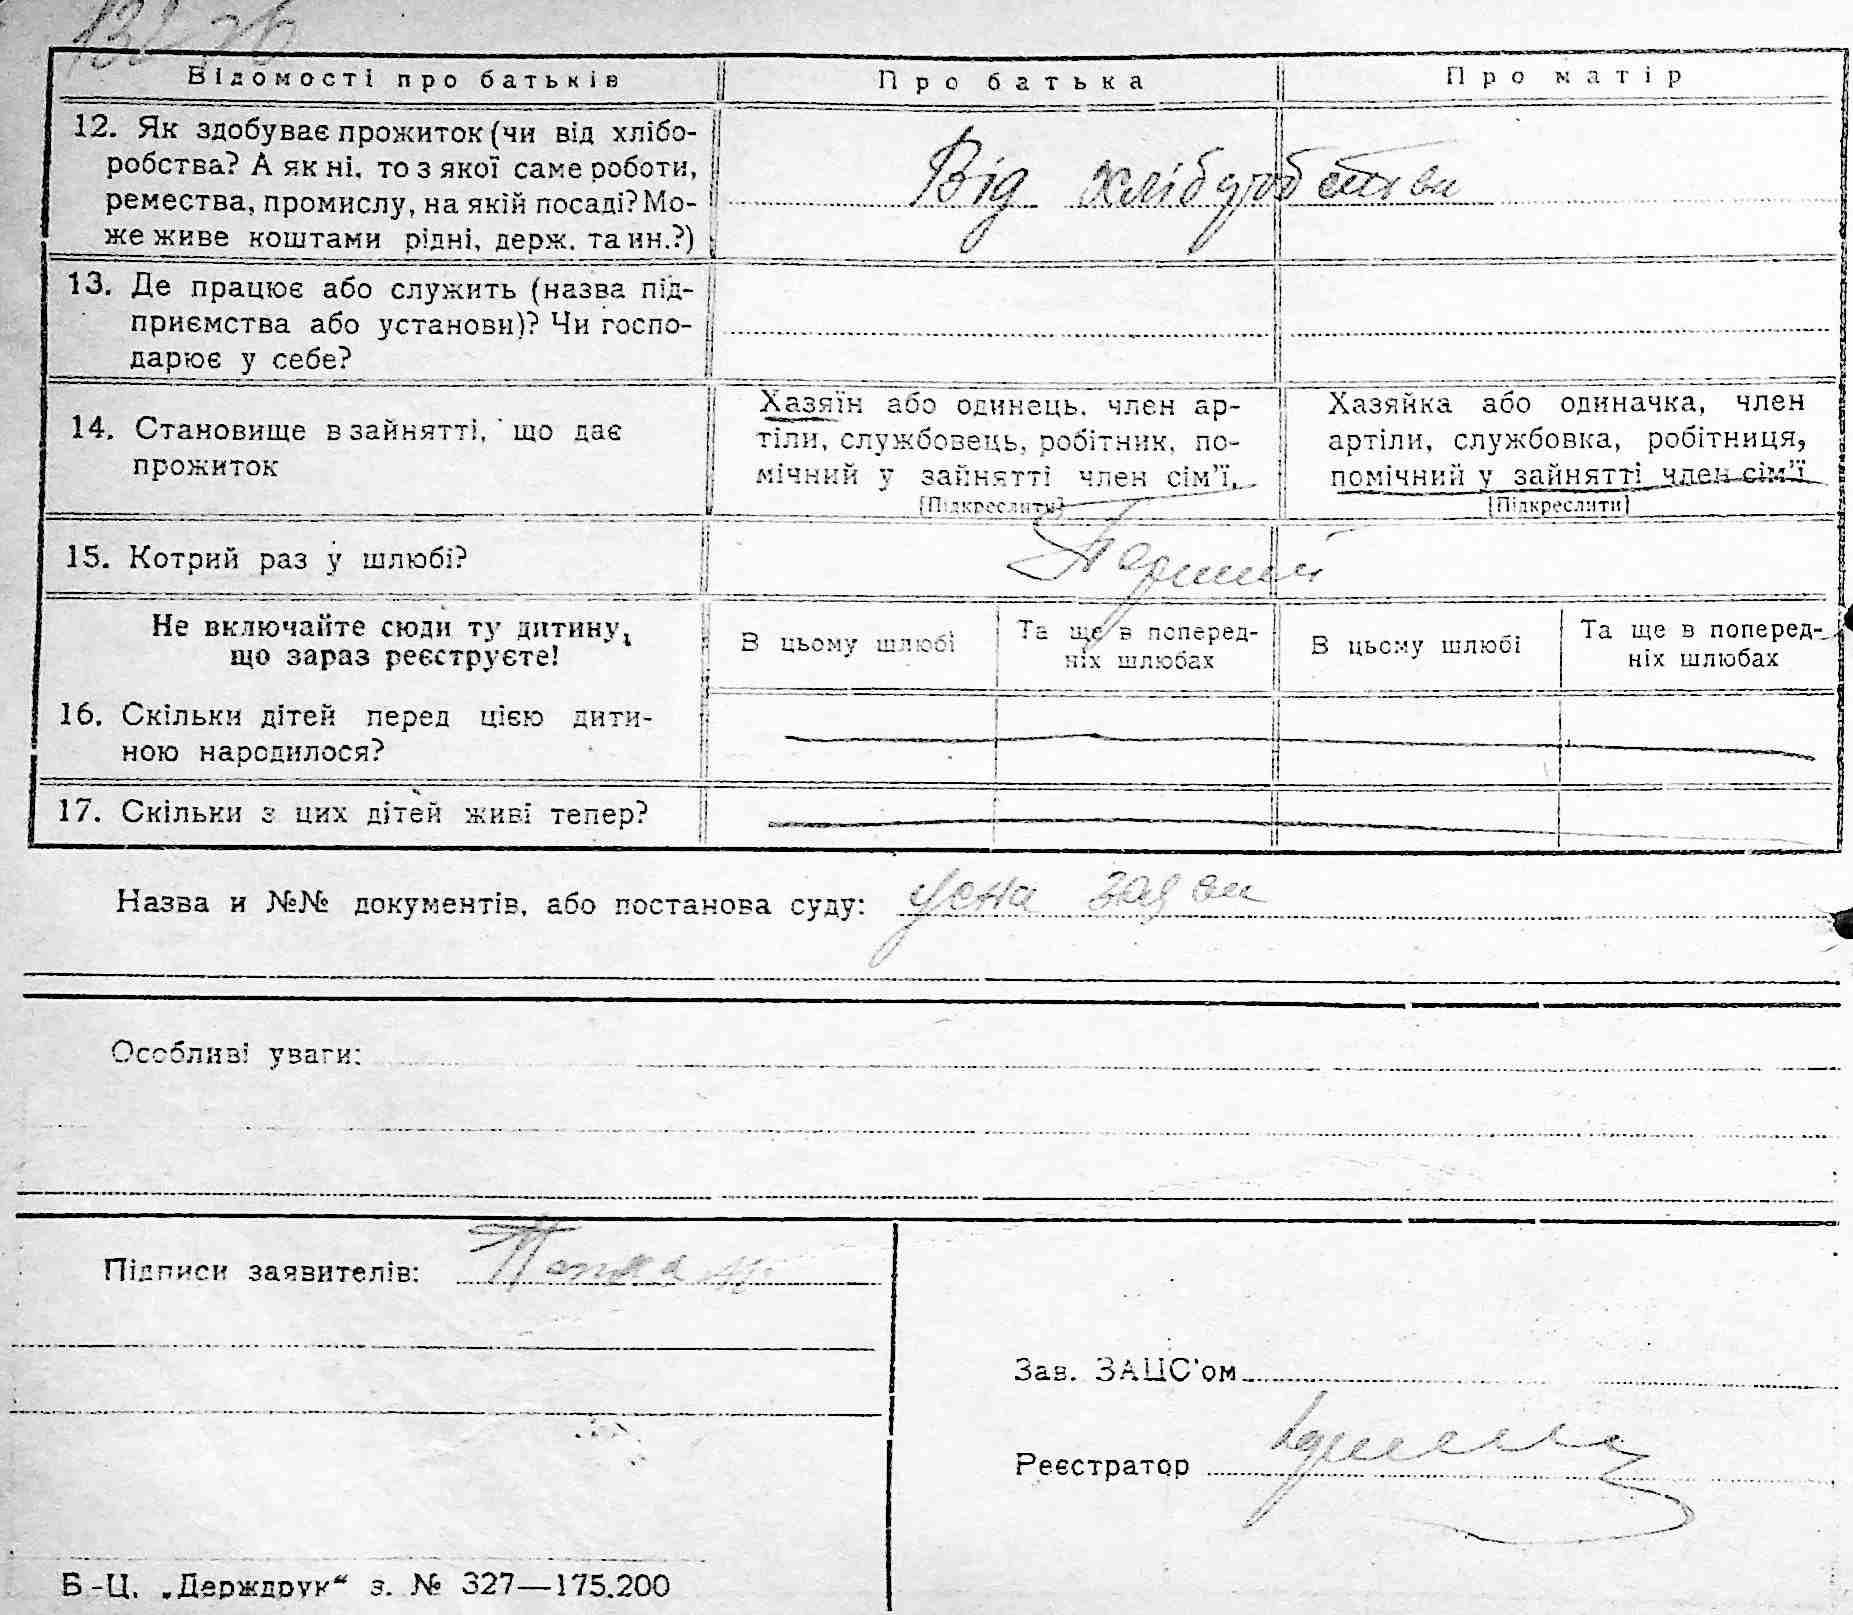 Відомості про батьків Про батька Про матір
12. Як здобуває прожиток (чи від хлібо-
робства? А як ні, то з якої саме роботи,
ремества, промислу, на якій посаді? Мо-
же живе коштами рідні, держ. та ин.?)
Від хліборобства
13. Де працює або служить (назва під-
приємства або установи)? Чи госпо-
дарює у себе?
14. Становище в зайнятті, що дає
прожиток
Хазяїн або одинець, член ар-
тіли, службовець, робітник, по-
мічний у зайнятті член сім'ї.
[Підкреслити]
Хазяйка або одиначка, член
артіли, службовка, робітниця,
помічний у зайнятті член сім'ї
[Підкреслити]
15. Котрий раз у шлюбі?
Перший
Не включайте сюди ту дитину,
що зараз реєструєте!
В цьому шлюбі
Та ще в поперед-
ніх шлюбах
В цьому шлюбі
Та ще в поперед-
ніх шлюбах
16. Скільки дітей перед цією дити-
ною народилося?
17. Скільки з цих дітей живі тепер?
Назва и №№ документів, або постанова суду: Усна заява
Особливі уваги:
Підписи заявителів:
Зав. ЗАЦС'ом
Реєстратор
Б.-Ц. „Держдрук“ з. № 327—175.200